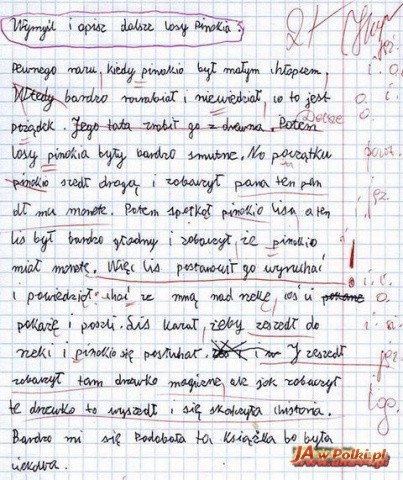 Wymyśl i opisz dalsze losy pinokia.
2+
Pewnego razu, kiedy pinokio był małym chłopcem,
Wtedy bardzo rozrabiał i niewiedział, co to jest
porządek. Jego tata zrobił go z drewna. Potem
Dalsze
losy pinokia były bardzo smutne. Na początku
pinokio szedł drogą i zobaczył pana ten pan
dł mu monete. Potem spotkał pinokio lisa a ten
lis był bardzo głodny i zobaczył, że pinokio
miał monetę. Więc lis postanowił go wyruchać
i powiedział: chać ze mną nad rzekę, coś ci
pokażę i poszli. Lis kazał, żeby zeszedł do
rzeki i pinokio się posłuchał. i J zeszedł
zobaczył tam drewko magiczne, ale jak zobaczył
te drzewko to wyszedł i się skończyła chistoria.
Bardzo mi się Podobała ta książka bo była
ciekowa.
JAwPolki.pl